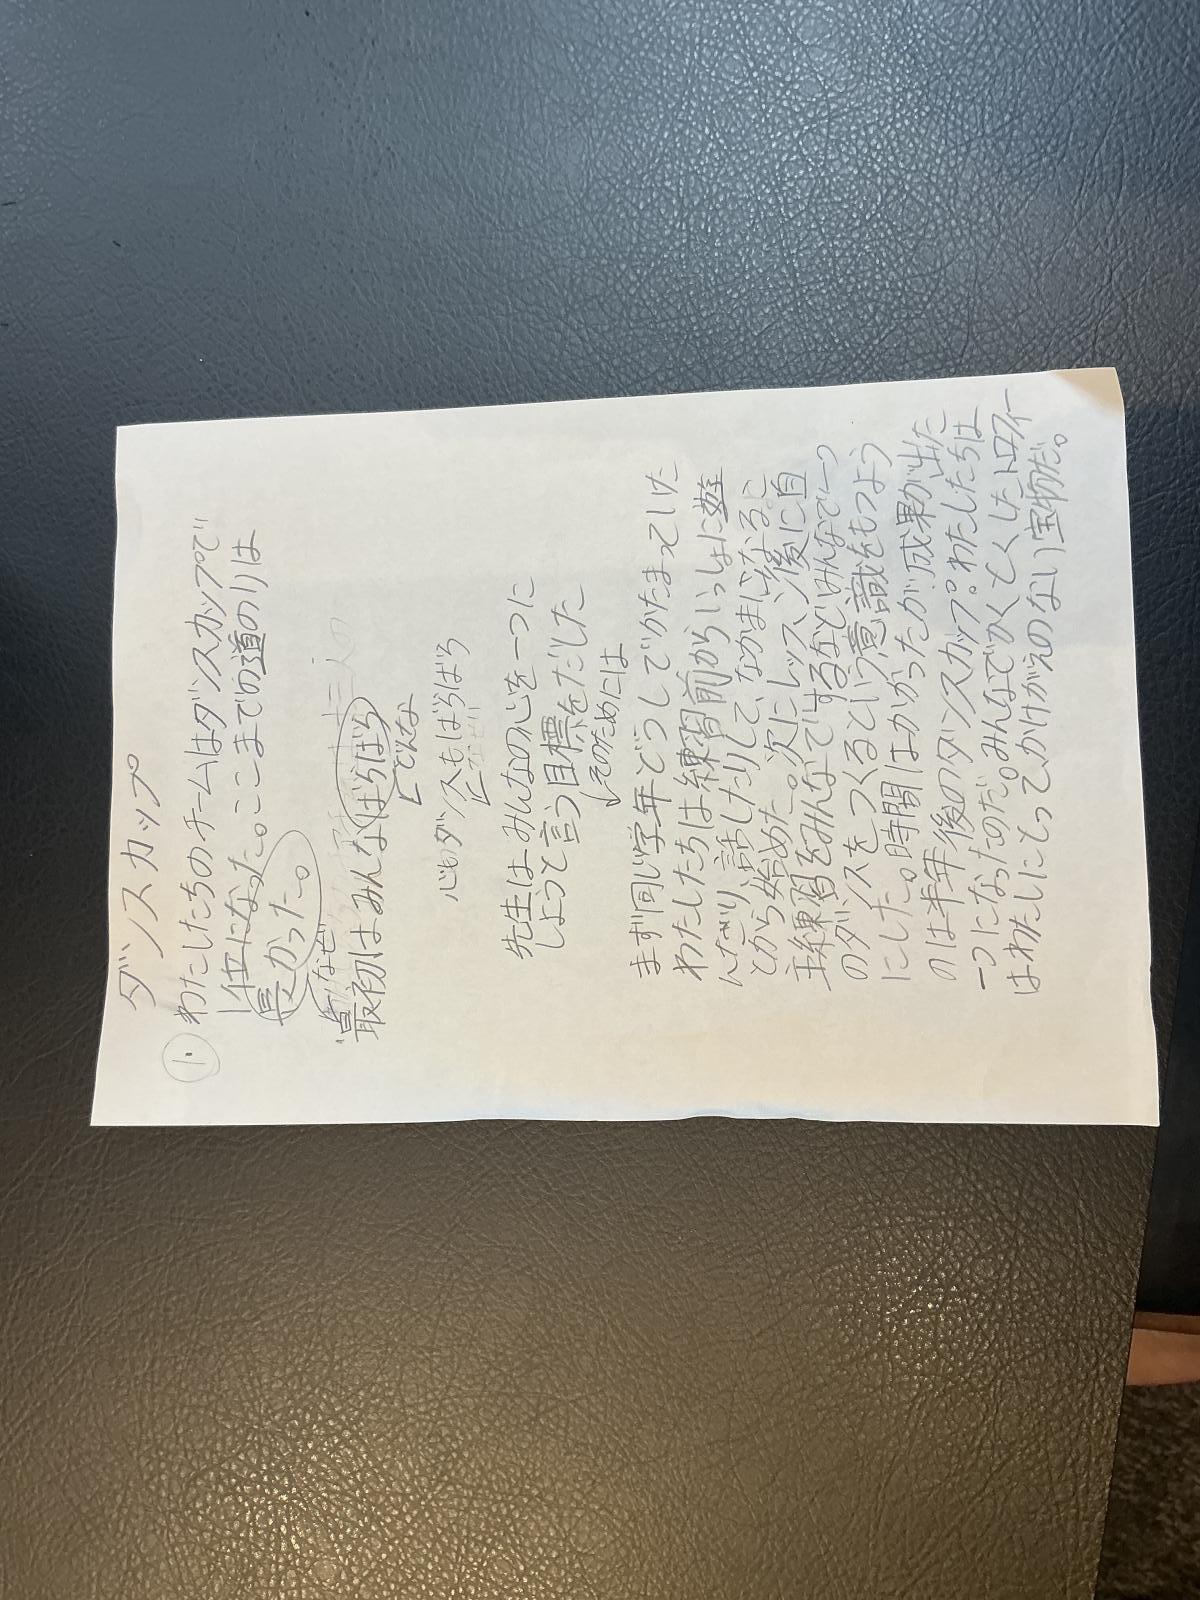 ダンスカップ
1. わたしたちのチームはダンスカップで
1位になった。ここまでの道のりは
長かった。
なぜ
最初はみんなばらばら
どんな
心もダンスもばらばら
なぜ
先生はみんなの心を一つに
しようと言う目標をだした
そのためには
まず同じ学年どうしでかたまってしけた
わたしたちは練習前からいっしょに遊
んだり、話したりして、なかまになるこ
とから始めた。次にレッスン後に自
主練習をみんなでするなどみんなで一つ
のダンスをつくるという意識をもつよう
にした。時間はかかったが成果が出た
のは半年後のダンスカップ。わたしたちは
一つになったのだ。みんなでかくとくしたトロフィー
はわたしにとってかけがえのない宝物だ。